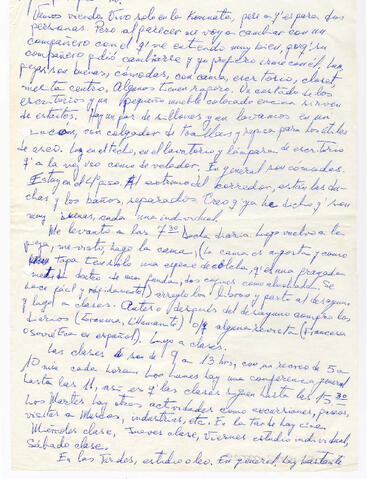 vamos viendo. Vivo solo en la Komnata, pero q' es para dos
personas. Pero al parecer me voy a cambiar con un
compañero con el q' me entiendo muy bien, porq' su
compañero pidió cambiarse y yo prefiero irme con él. Las
piezas son buenas, cómodas, con cama, escritorio, closet,
mesita centro. Algunos tienen ropero. Un costado de los
escritorios y un pequeño mueble colocado encima sirven
de estantes. Hay un par de sillones y un lavamos en un
con colgador de toallas y repisa para los útiles
de aseo. Luz en el techo, en el lavatorio y lámpara de escritorio
q' a la vez veo como de velador. En general son cómodas.
Estoy en el 4º piso. Al extremo del corredor, están las du-
chas y los baños, separados. Creo q' ya he dicho q' son
muy buenas, cada una individual.
Me levanto a las 7:30. Ducha diaria. Luego vuelvo a la
pieza, me visto, hago la cama, (la cama es angosta y como
tapa tiene sólo una especie de colcha, q' es una frazada
metida dentro de una funda, dos cojines como almohadas. Se
hace fácil y rápidamente) arreglo los libros y parto al desayuno
y luego a clases. Antes o después del desayuno compro los
diarios (Granma, L'Humanité) o/y alguna revista (francesa
o soviética en español). Luego a clases.
Las clases son de 9 a 13 hrs, con un recreo de 5 a
10 min. cada hora. Los lunes hay una conferencia general
hasta las 11, así es q' las clases siguen hasta las 15:30
Los Martes hay otras actividades como excursiones, paseos,
visitas a Museos, industrias, etc. En la tarde hay cine.
Miércoles clase, Jueves clase, Viernes estudio individual,
Sábado clase.
En las Tardes, estudio o leo. En general, hay bastante